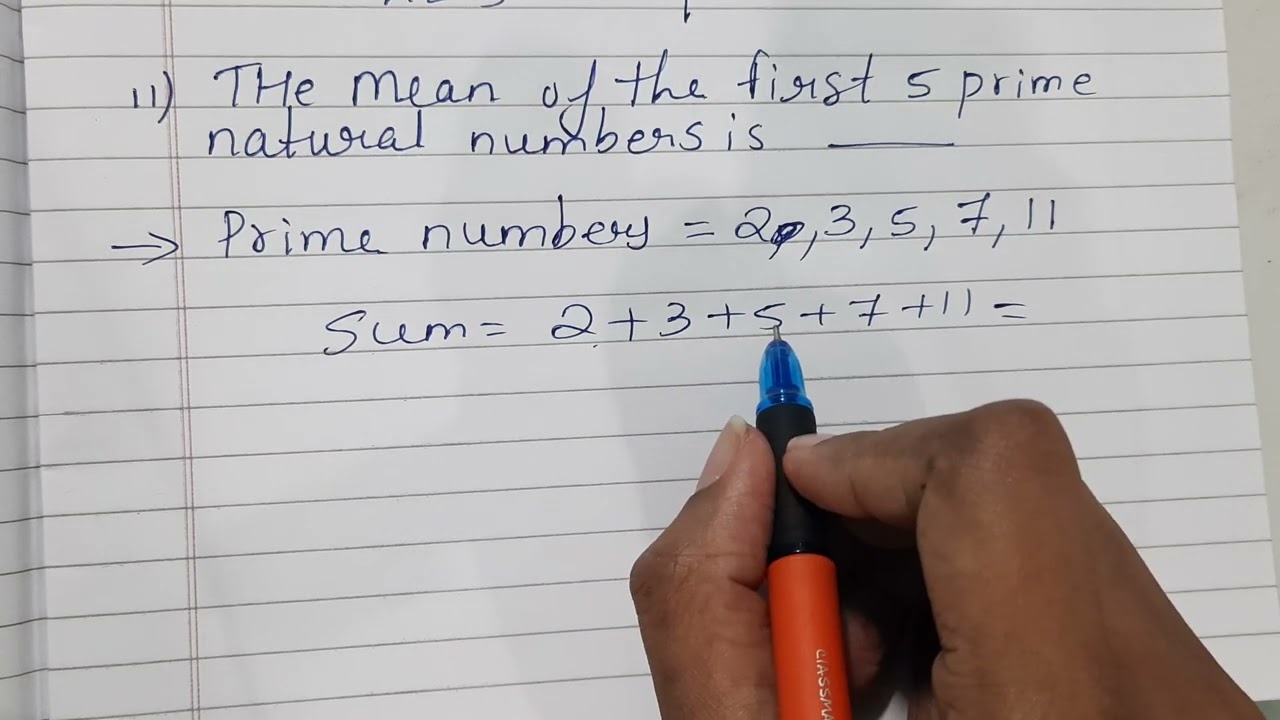 11) THe mean of the first 5 prime
natural numbers is ____
→ Prime numbers = 2, 3, 5, 7, 11
Sum = 2 + 3 + 5 + 7 + 11 =